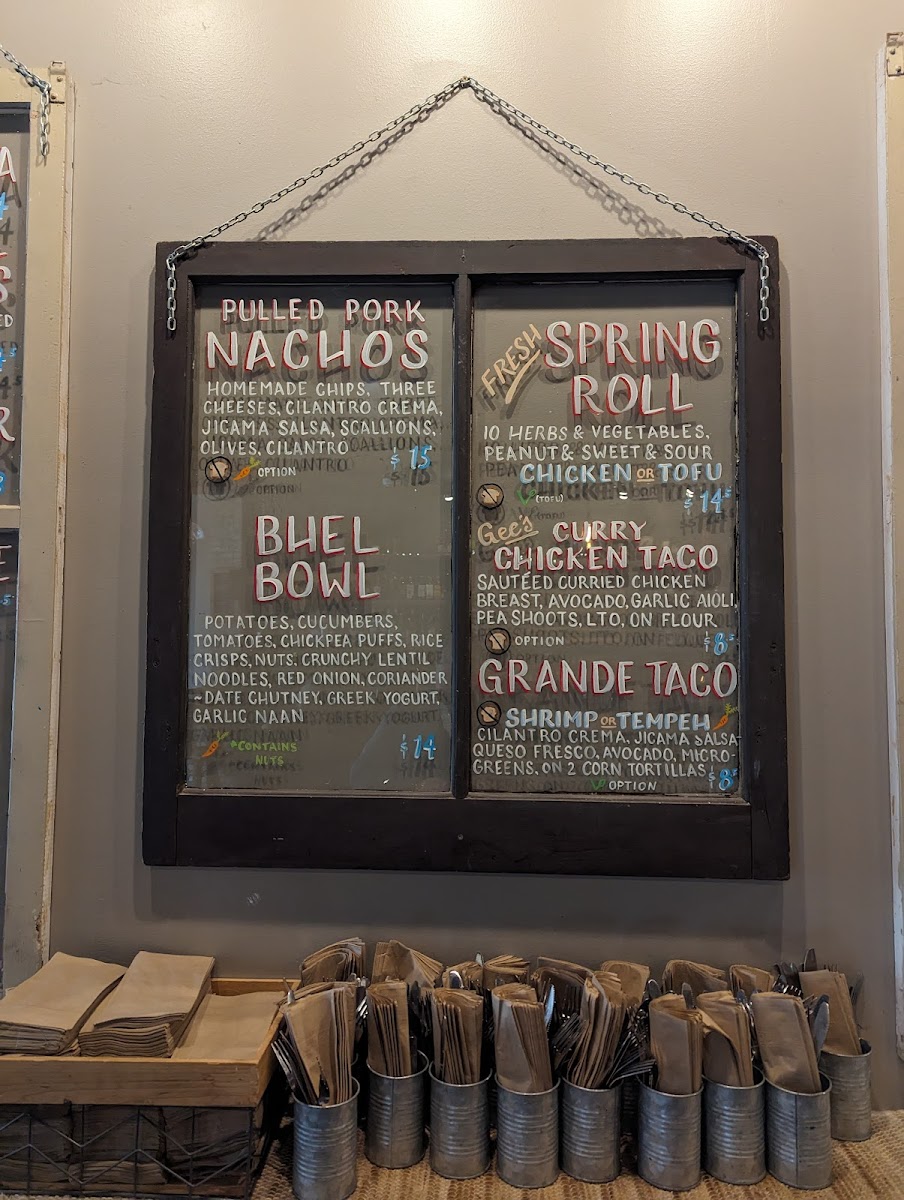 PULLED PORK
NACHOS
HOMEMADE CHIPS, THREE
CHEESES, CILANTRO CREMA,
JICAMA SALSA, SCALLIONS,
OLIVES, CILANTRO
$15
OPTION
BHEL
BOWL
POTATOES, CUCUMBERS,
TOMATOES, CHICKPEA PUFFS, RICE
CRISPS, NUTS, CRUNCHY LENTIL
NOODLES, RED ONION, CORIANDER
~DATE CHUTNEY, GREEK YOGURT,
GARLIC NAAN
*CONTAINS
NUTS
$14
FRESH SPRING
ROLL
10 HERBS & VEGETABLES,
PEANUT & SWEET & SOUR
CHICKEN OR TOFU
(TOFU)
$14.5
Gee's CURRY
CHICKEN TACO
SAUTÉED CURRIED CHICKEN
BREAST, AVOCADO, GARLIC AIOLI
PEA SHOOTS, LTO, ON FLOUR
OPTION
$8.5
GRANDE TACO
SHRIMP OR TEMPEH
CILANTRO CREMA, JICAMA SALSA
QUESO FRESCO, AVOCADO, MICRO-
GREENS, ON 2 CORN TORTILLAS
$8.5
OPTION